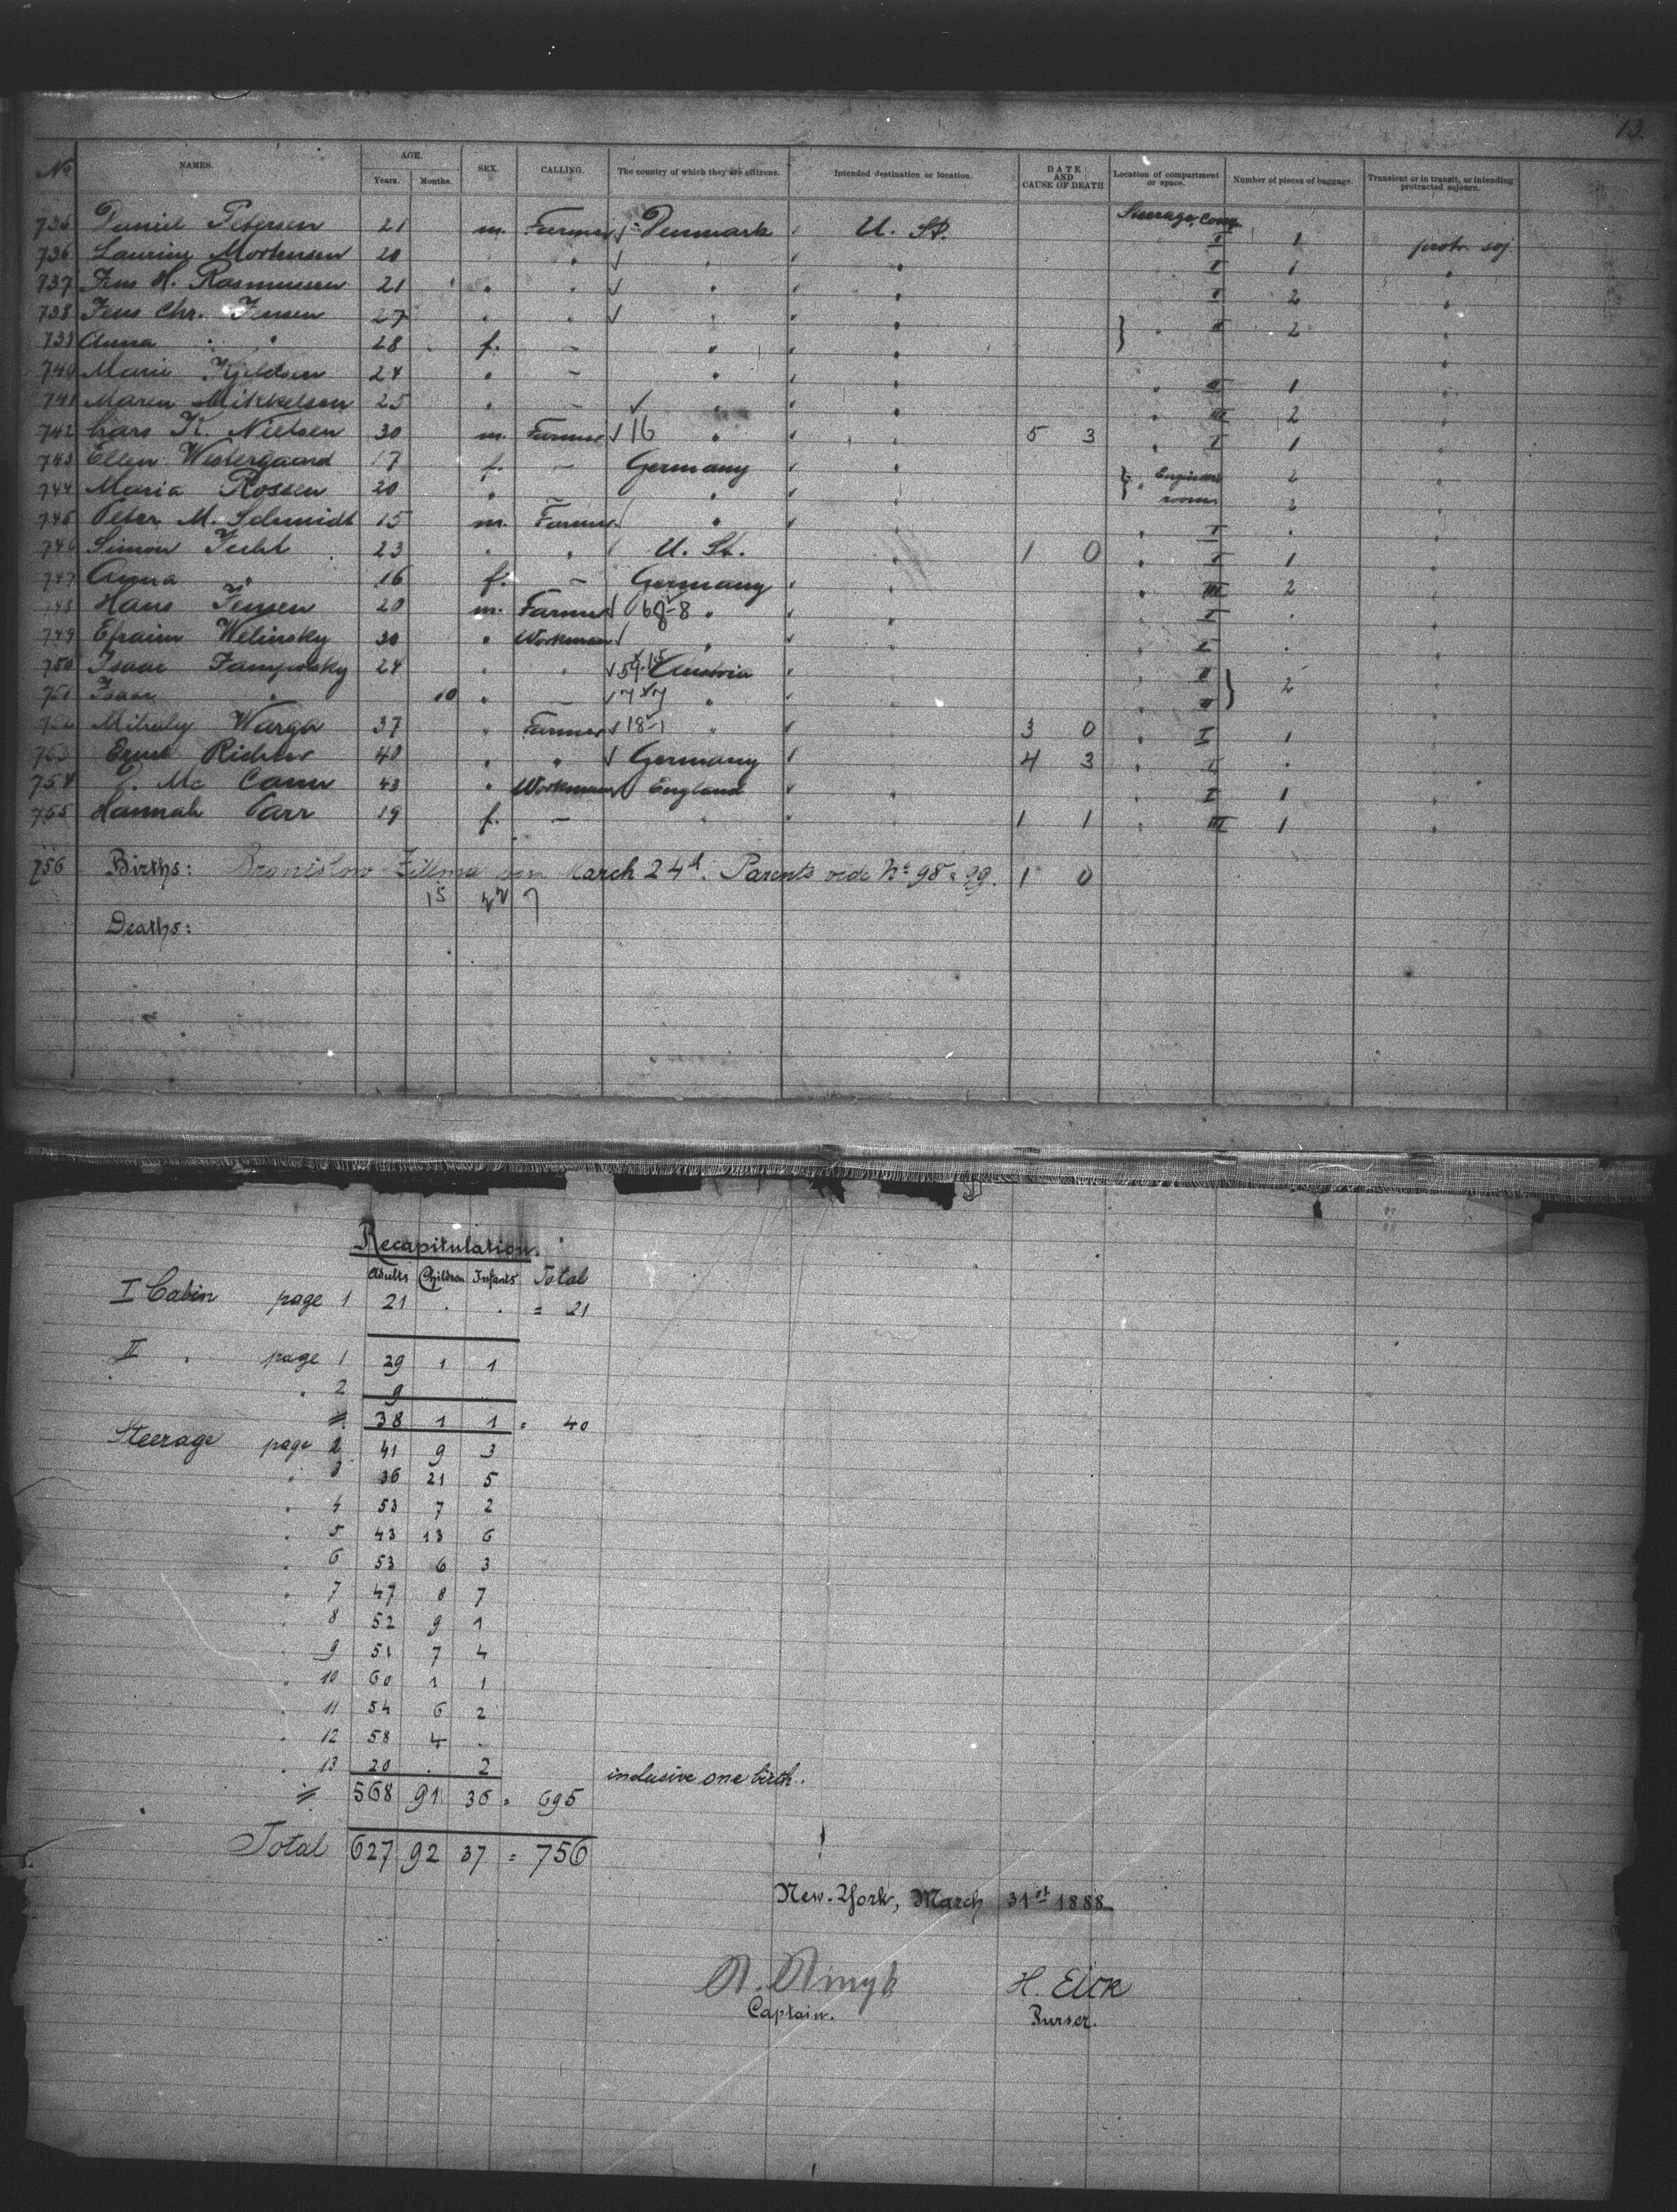 13.
No NAMES. AGE. Years. Months. SEX. CALLING. The country of which they are citizens. Intended destination or location. DATE AND CAUSE OF DEATH Location of compartment or space. Number of pieces of baggage. Transient or in transit, or intending protracted sojourn.
735 Daniel Petersen 21 m. Farmer Denmark U. St. Steerage, Comp. I 1 protr. soj.
736 Laurinz Mortensen 20 " " " I 1 "
737 Jens H. Rasmussen 21 " " " " I 2 "
738 Jens Chr. Jensen 27 " " " " " II 2 "
739 Anna " " 28 f. – " " "
740 Marie Kjeldsen 24 " – " " " II 1 "
741 Maren Mikkelsen 25 " – " " " III 2 "
742 Lars K. Nielsen 30 m. Farmer 16 " " 5 3 " I 1 "
743 Ellen Westergaard 17 f. – Germany " " Engineers 2 "
744 Maria Rossen 20 " – " " room 2 "
745 Peter M. Schmidt 15 m. Farmer " " " I " "
746 Simon 23 " " U. St. " 1 0 " I 1 "
747 Anna " 16 f. – Germany " " III 2 "
748 Hans Jensen 20 m. Farmer 68-8 " " " I " "
749 Efraim Welinsky 30 " Workman " " " I " "
750 Isaac 24 " " 59-15 Austria " " II 2 "
751 Isaac " 10 " – " " " II "
752 Mihaly Warga 37 " Farmer 18-1 " " 3 0 " I 1 "
753 Ernst Richter 48 " " Germany " 4 3 " I " "
754 Mc Cann 43 " Workman England " " I 1 "
755 Hannah Parr 19 f. – " " 1 1 " III 1 "
756 Births: Bronislow born March 24th. Parents vide No 98 & 99. 1 0
15
Deaths:
Recapitulation.
Adults Children Infants Total
I Cabin page 1 21 . . = 21
II " page 1 29 1 1
" 2 9 ..
38 1 1 = 40
Steerage page 2 41 9 3
" 3 36 21 5
" 4 53 7 2
" 5 43 13 6
" 6 53 6 3
" 7 47 8 7
" 8 52 9 1
" 9 51 7 4
" 10 60 1 1
" 11 54 6 2
" 12 58 4 .
" 13 20 . 2 inclusive one birth.
568 91 36 = 695
Total 627 92 37 = 756
New-York, March 31st 1888.
H. Eick
Captain. Purser.